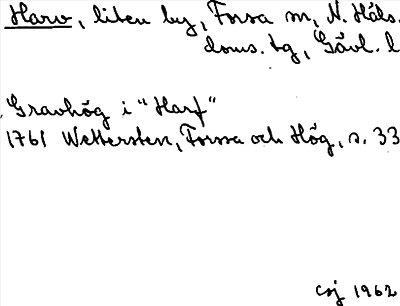 Harv, liten by, Forsa sn, N. Häls.
doms. tg, Gävl. l
Gravhög i "Harf"
1761 Wettersten, Forssa och Hög, s. 33
CSJ 1962